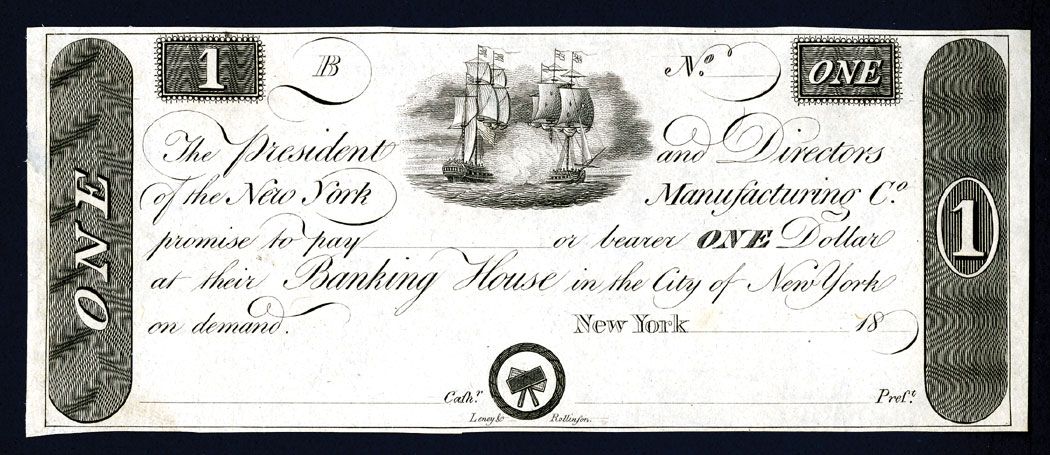 1 B No. ONE
The President and Directors
of the New York Manufacturing Co.
promise to pay or bearer ONE Dollar
at their Banking House in the City of New York
on demand. New York 18
Cashr. Prest.
Leney & Rollinson.
ONE
1